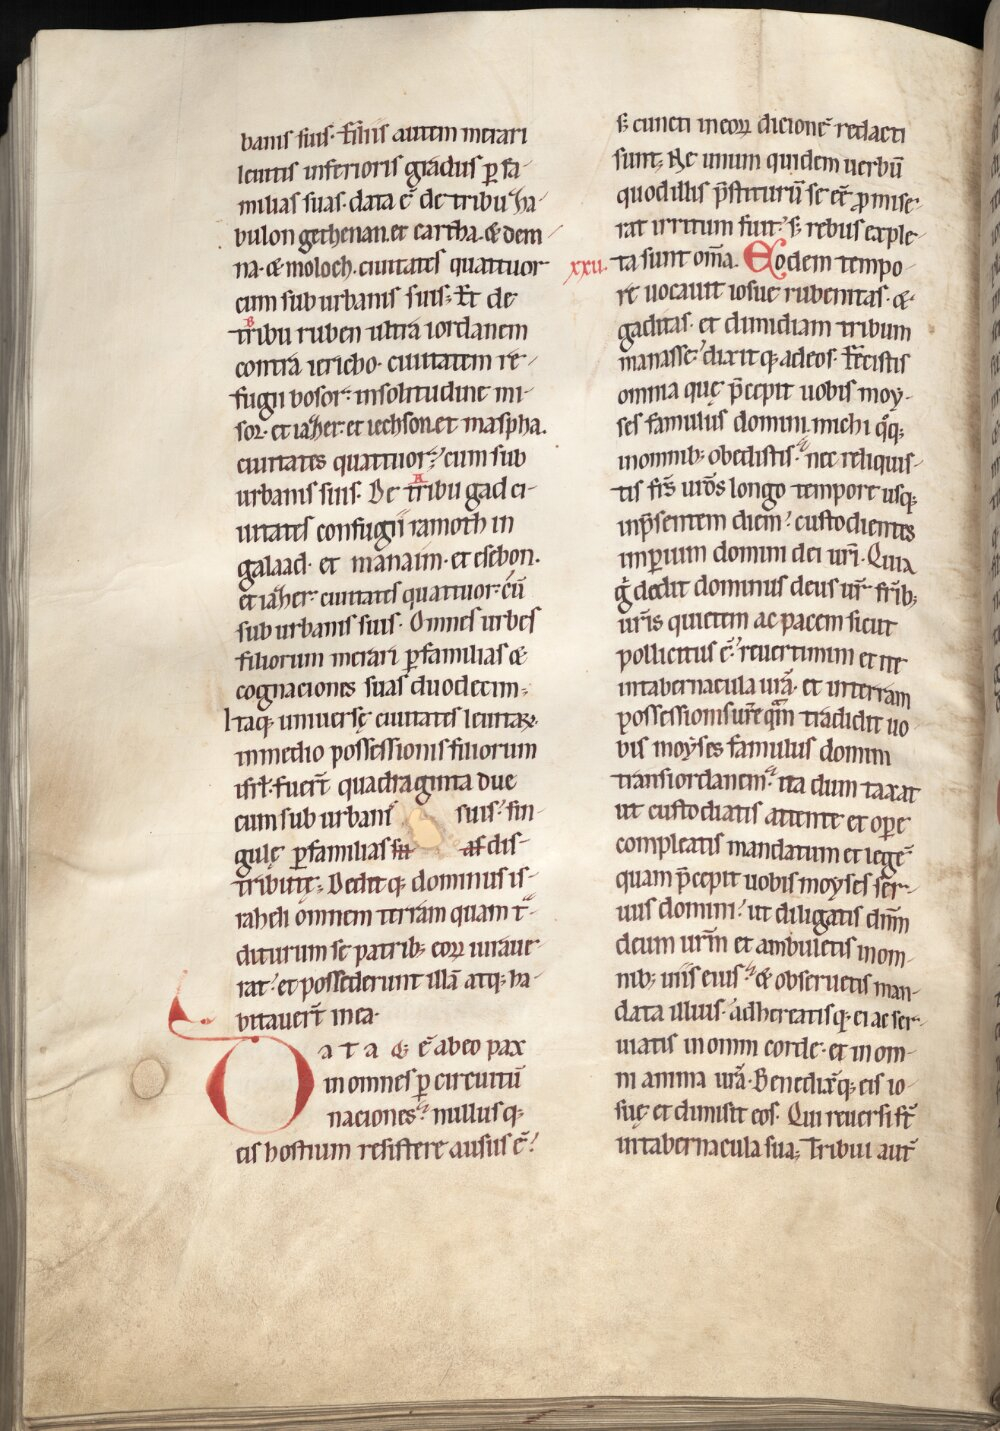 banis suis. filiis autem merari
leuitis inferioris gradus ꝑ fa-
milias suas. data ē de tribu ҙa-
bulon gethenan. et cartha. & dem-
na. & moloch. ciuitates quattuor
cum sub urbanis suis; Et de
B
tribu ruben ultra iordanem
contra iericho. ciuitatem re-
fugii bosor. insolitudine mi-
sor. et iaҙer. et iechson. et maspha.
ciuitates quattuor. cum sub
A
urbanis suis. De tribu gad ci-
uitates confugii ramoth in
galaad. et manaim. et esebon.
et iaҙer. ciuitates quattuor. cū
sub urbanis suis. Omnes urbes
filiorum merari ꝑ familias &
cognaciones suas duodecim;
Itaq; uniuersę ciuitates leuitaꝝ
inmedio possessionis filiorum
isrł. fuert̄ quadraginta due
cum sub urbanis suis. sin-
gulę ꝑ familias dis-
tributę; Dedit q; dominus is-
raheli omnem terram quam t̄-
diturum se patrib; eoꝝ iuraue-
rat. et possederunt illā atq; ha-
bitauert̄ in ea.
Data & ē abeo pax
in omnes ꝑ circuitū
naciones. nullus q;
eis hostium resistere ausus ē.
s; cuncti in eoꝝ dicionē redacti
sunt; Ne unum quidem uerbū
quod illis p̄stiturū se eē ꝓmise-
rat irritum fuit. s; rebus exple-
xxii. ta sunt om̄a. Eodem tempo-
re uocauit iosue rubenitas. &
gaditas. et dimidiam tribum
manasse. dixit q; ad eos. Fecistis
omnia quę p̄cepit uobis moy-
ses famulus domini. michi q̊q;
in omnib; obedistis. nec reliquis-
tis frs̄ uros̄ longo tempore usq;
inp̄sentem diem. custodientes
imꝑium domini dei urī. Quia
g̊ dedit dominus deus ur̄ frib̄;
urīs quietem ac pacem sicut
pollicitus ē. reuertimini et ite
in tabernacula urā. et in terram
possessionis urē qm̄ tradidit uo-
bis moyses famulus domini
trans iordanem. ita dum taxat
ut custodiatis attente et opere
compleatis mandatum et legē
quam p̄cepit uobis moyses ser-
uus domini. ut diligatis dnm̄
deum urm̄ et ambuletis in om-
nib; uiis eius. & obseruetis man-
data illius. adhereatis q; ei ac ser-
uiatis in omni corde. et in om-
ni anima urā. Benedix̄ q; eis io-
suę et dimisit eos. Qui reuersi st̄
in tabernacula sua; Tribui aut̄